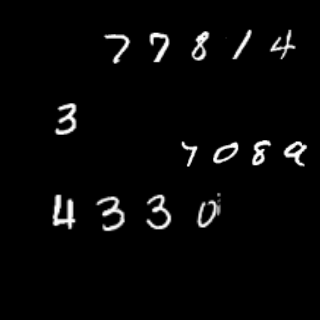 77814
3
7089
4330